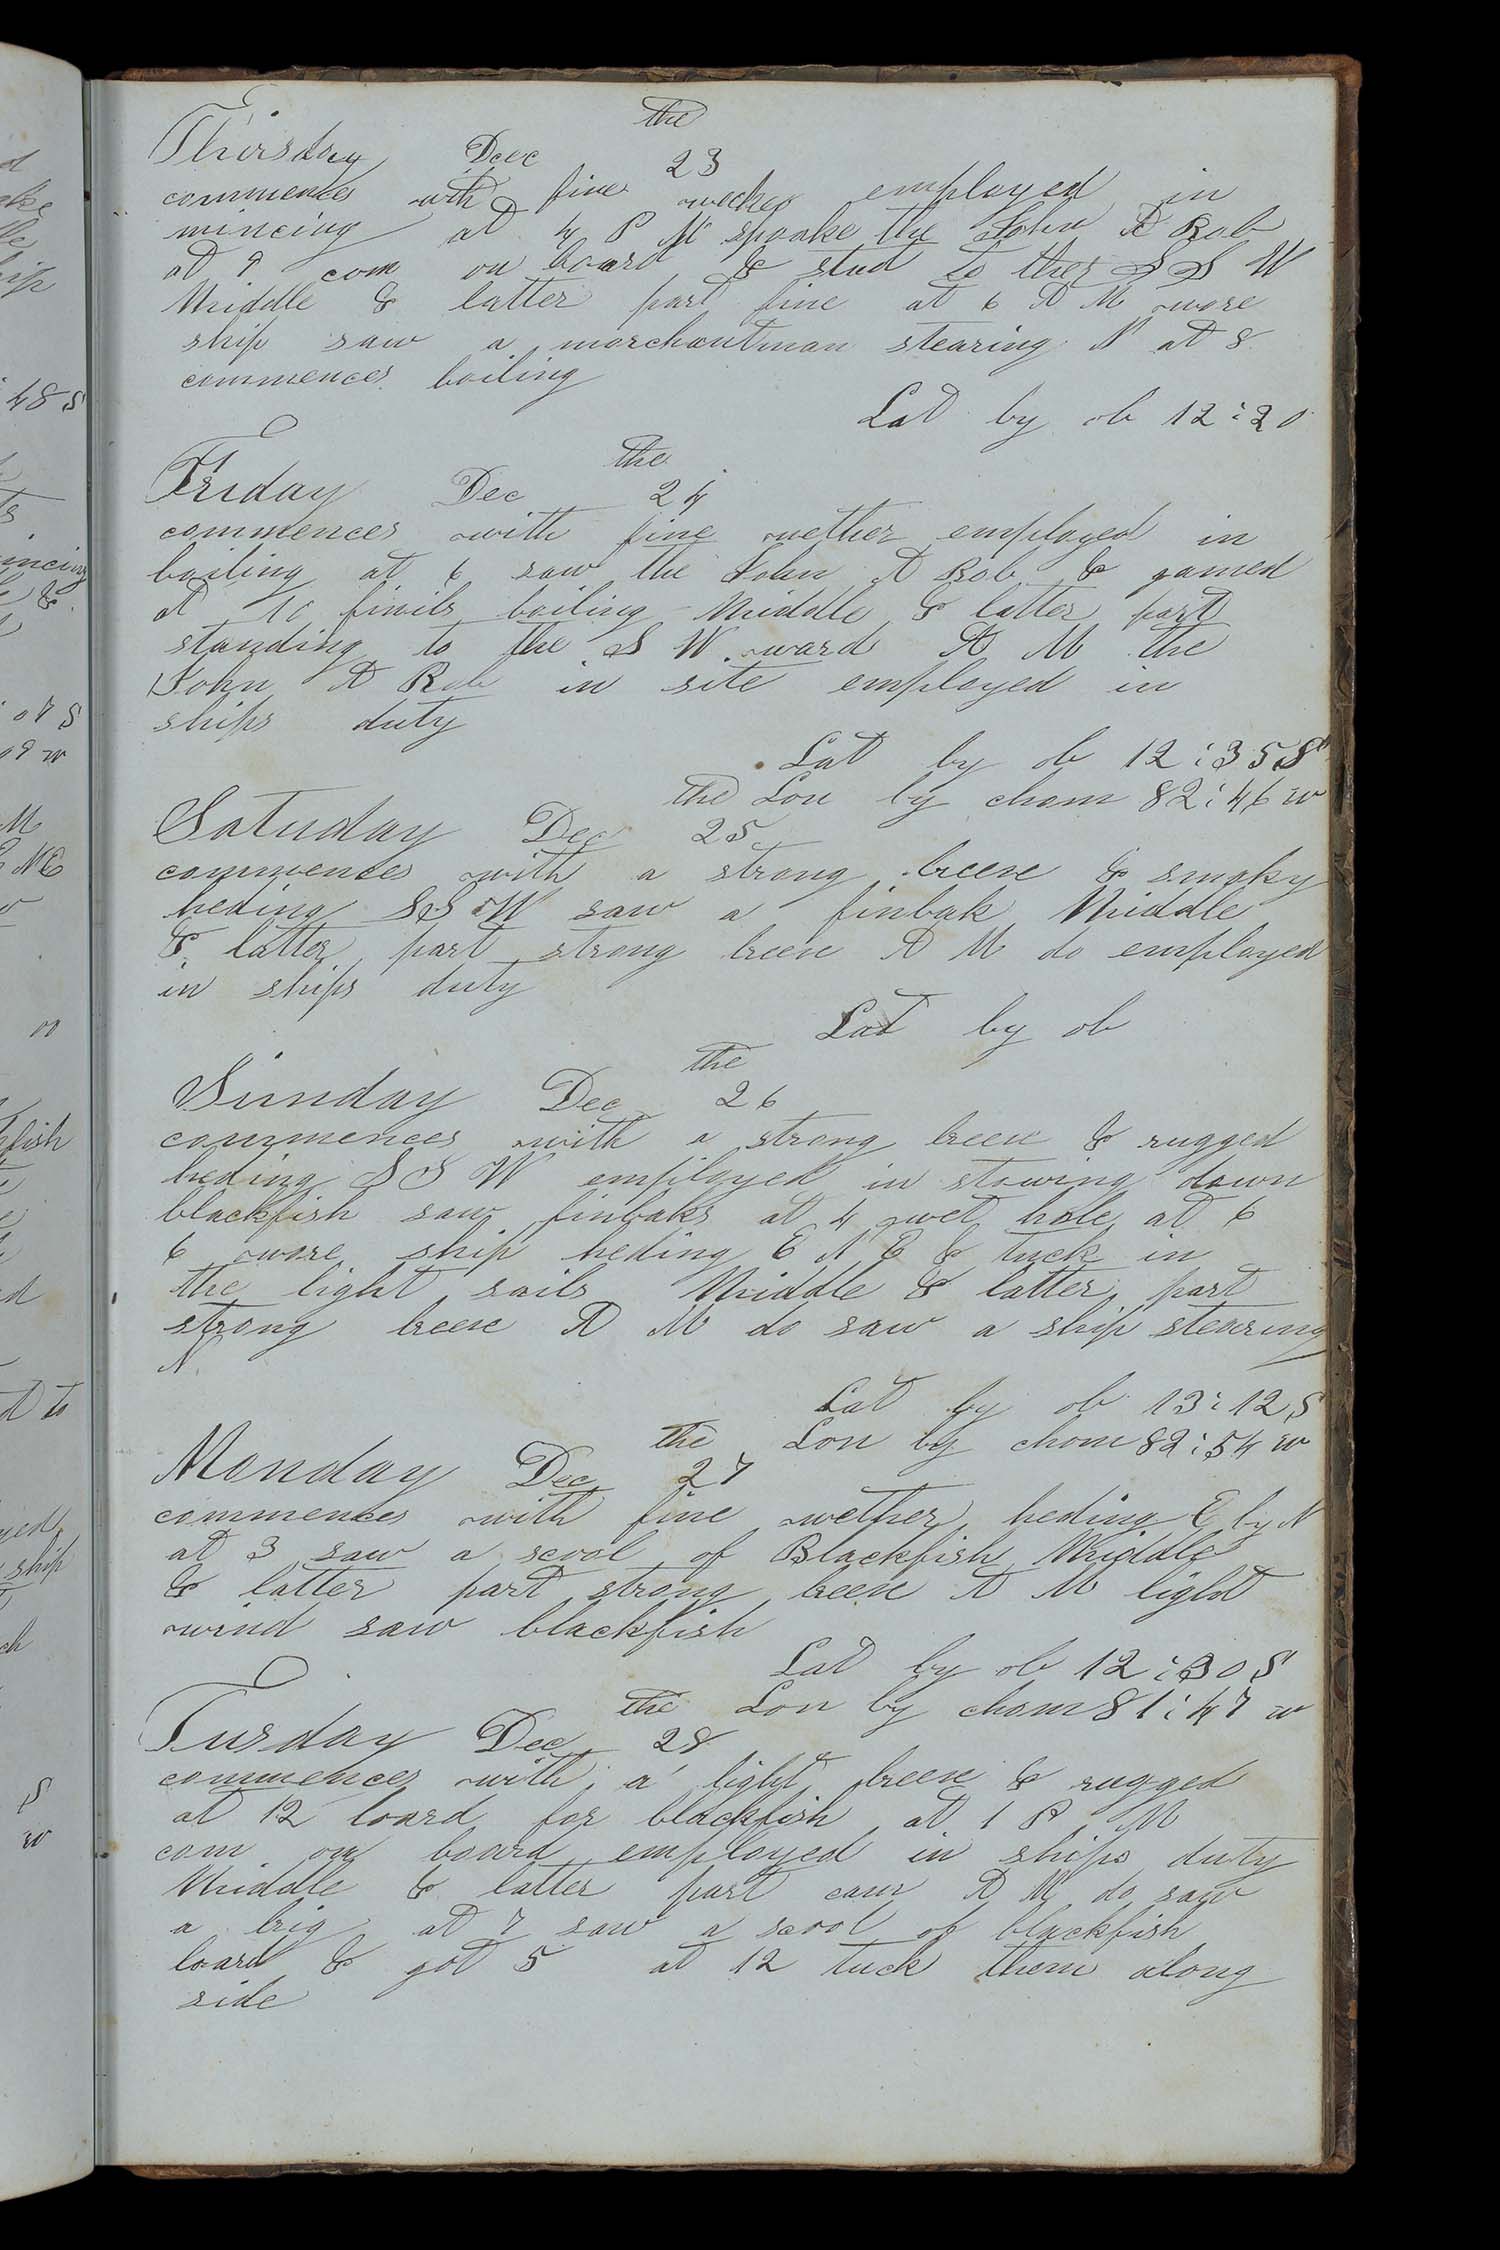 the
Thirsday Decc 23
commences with fine wether employed in
mincing at 4 P M spoake the John A Rob
at 9 com on board & stud to ther S S W
Middle & latter part fine at 6 A M wore
ship saw a marchantman stearing N at 8
commences boiling
Lat by ob 12:20
the
Friday Dec 24
commences with fine wether employed in
boiling at 6 saw the John A Rob & gamed
at 10 finils boiling Middle & latter part
standing to the S W ward A M the
John A Rob in site employed in
ships duty
Lat by ob 12:35 S
the Lon by chom 82:46 w
Satuday Dec 25
commences with a strong breese & smoky
heding S S W saw a finbak Middle
& latter part strong breese A M do employed
in ships duty
Lat by ob
the
Sunday Dec 26
commences with a strong breese & rugged
heding S S W employed in stowing down
blackfish saw finbaks at 4 wet hole at 6
6 wore ship heding E N E & tuck in
the light sails Middle & latter part
strong breese A M do saw a ship stearing
N
Lat by ob 13:12 S
the Lon by chom 82:54 w
Monday Dec 27
commences with fine wether heding E by N
at 3 saw a scool of Blackfish Middle
& latter part strong breese A M light
wind saw blackfish
Lat by ob 12:30 S
the Lon by chom 81:47 w
Tusday Dec 28
commences with a light breese & rugged
at 12 loard for blackfish at 1 P M
com on board employed in ships duty
Middle & latter part caur A M do saw
a brig at 7 saw a scool of blackfish
loard & got 5 at 12 tuck them along
side